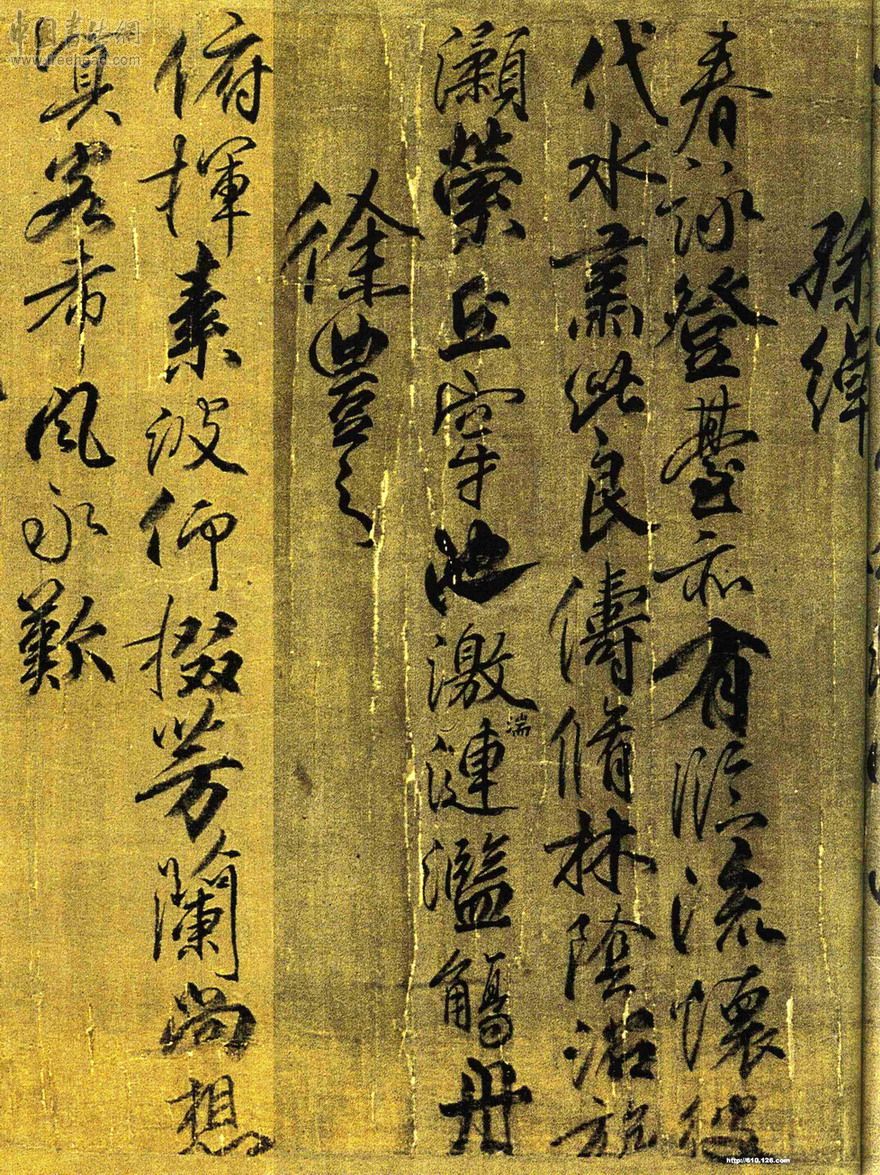 孫綽
春詠登臺亦有臨流懷彼
代水肅此良儔脩林陰沼旋
瀨縈丘穿池激湍漣濫觴舟
徐豐之
俯揮素波仰掇芳蘭尚想
真客希風永歎
中国书法網
www.freehead.com
http://610.126.com